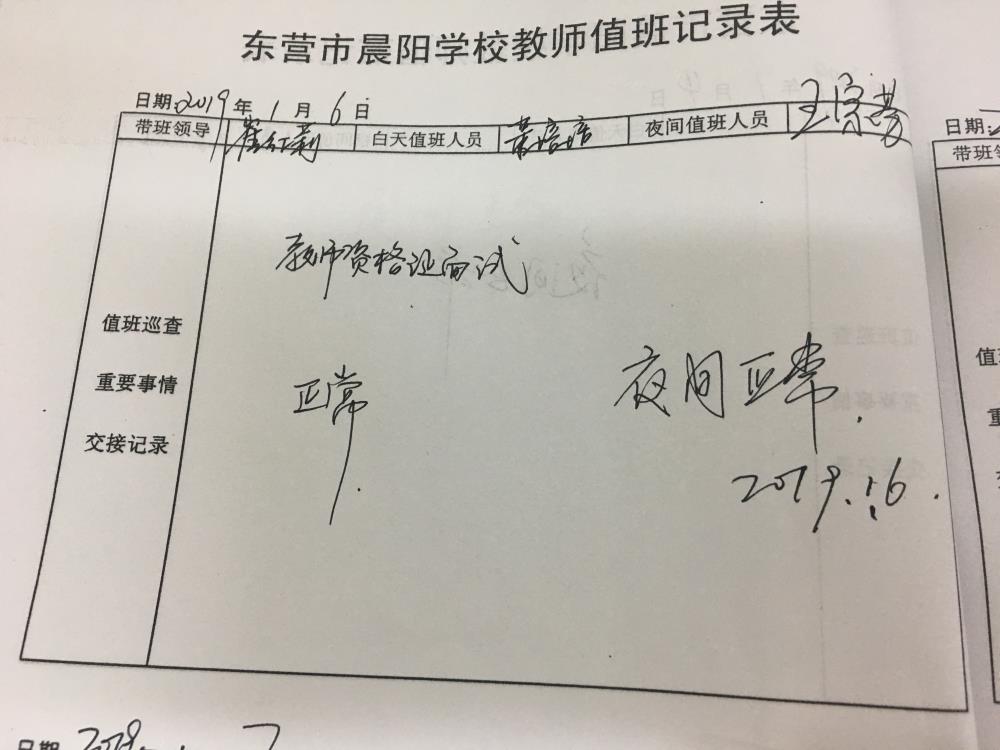 东营市晨阳学校教师值班记录表
日期:2019年1月6日
带班领导 崔红莉 白天值班人员 夜间值班人员 王宗芳
教师资格证面试
值班巡查
重要事情
交接记录
正常.
夜间正常.
2019.1.6.
日期:
带班领
值
重
日期 2019 7